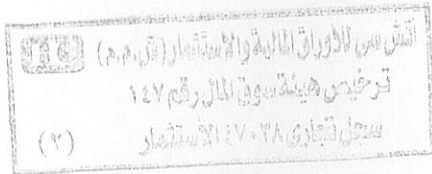 اتش سي للأوراق المالية والاستثمار (ش.م.م)
ترخيص هيئة سوق المال رقم ١٤٧
سجل تجاري ٤٧٠٣٨ الاستثمار
(٢)